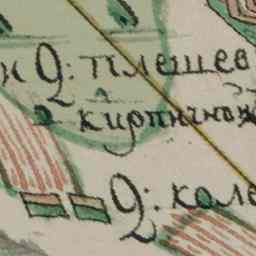 Д: плешев
2 кирпичнох
Д: коле